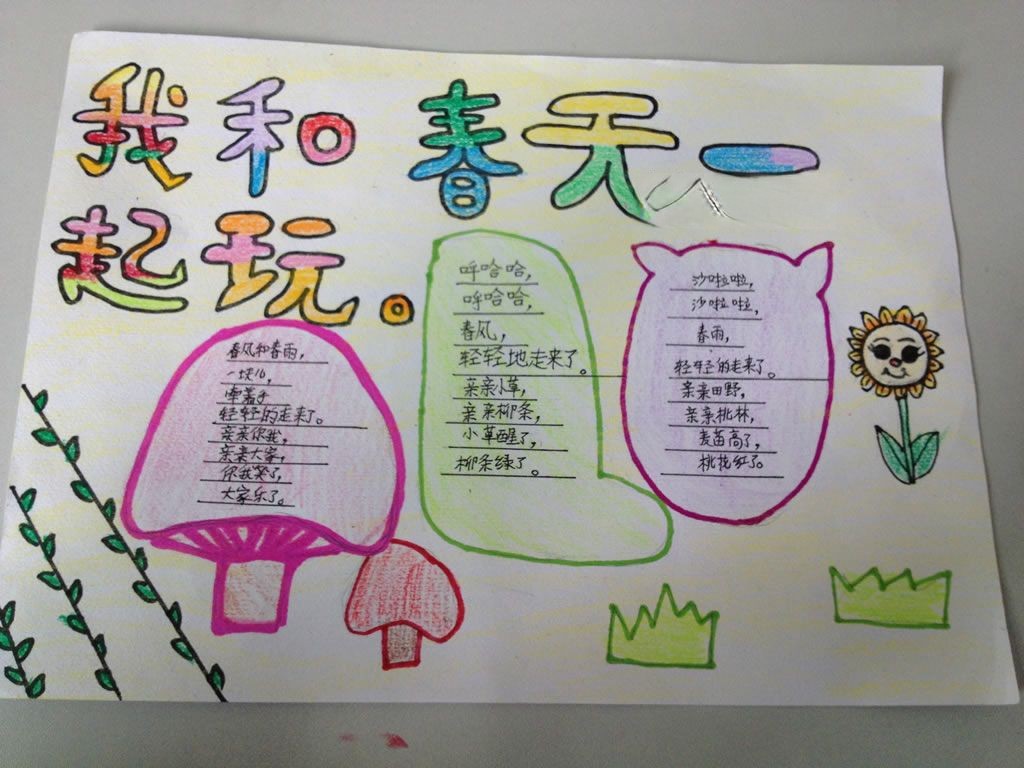 我和春天一
起玩。
春风和春雨，
一块儿，
牵着手
轻轻的走来了。
亲亲你我，
亲亲大家，
你我笑了，
大家乐了。
呼哈哈，
呼哈哈，
春风，
轻轻地走来了。
亲亲小草，
亲亲柳条，
小草醒了，
柳条绿了。
沙啦啦，
沙啦啦，
春雨，
轻轻的走来了。
亲亲田野，
亲亲桃林，
麦苗高了，
桃花红了。